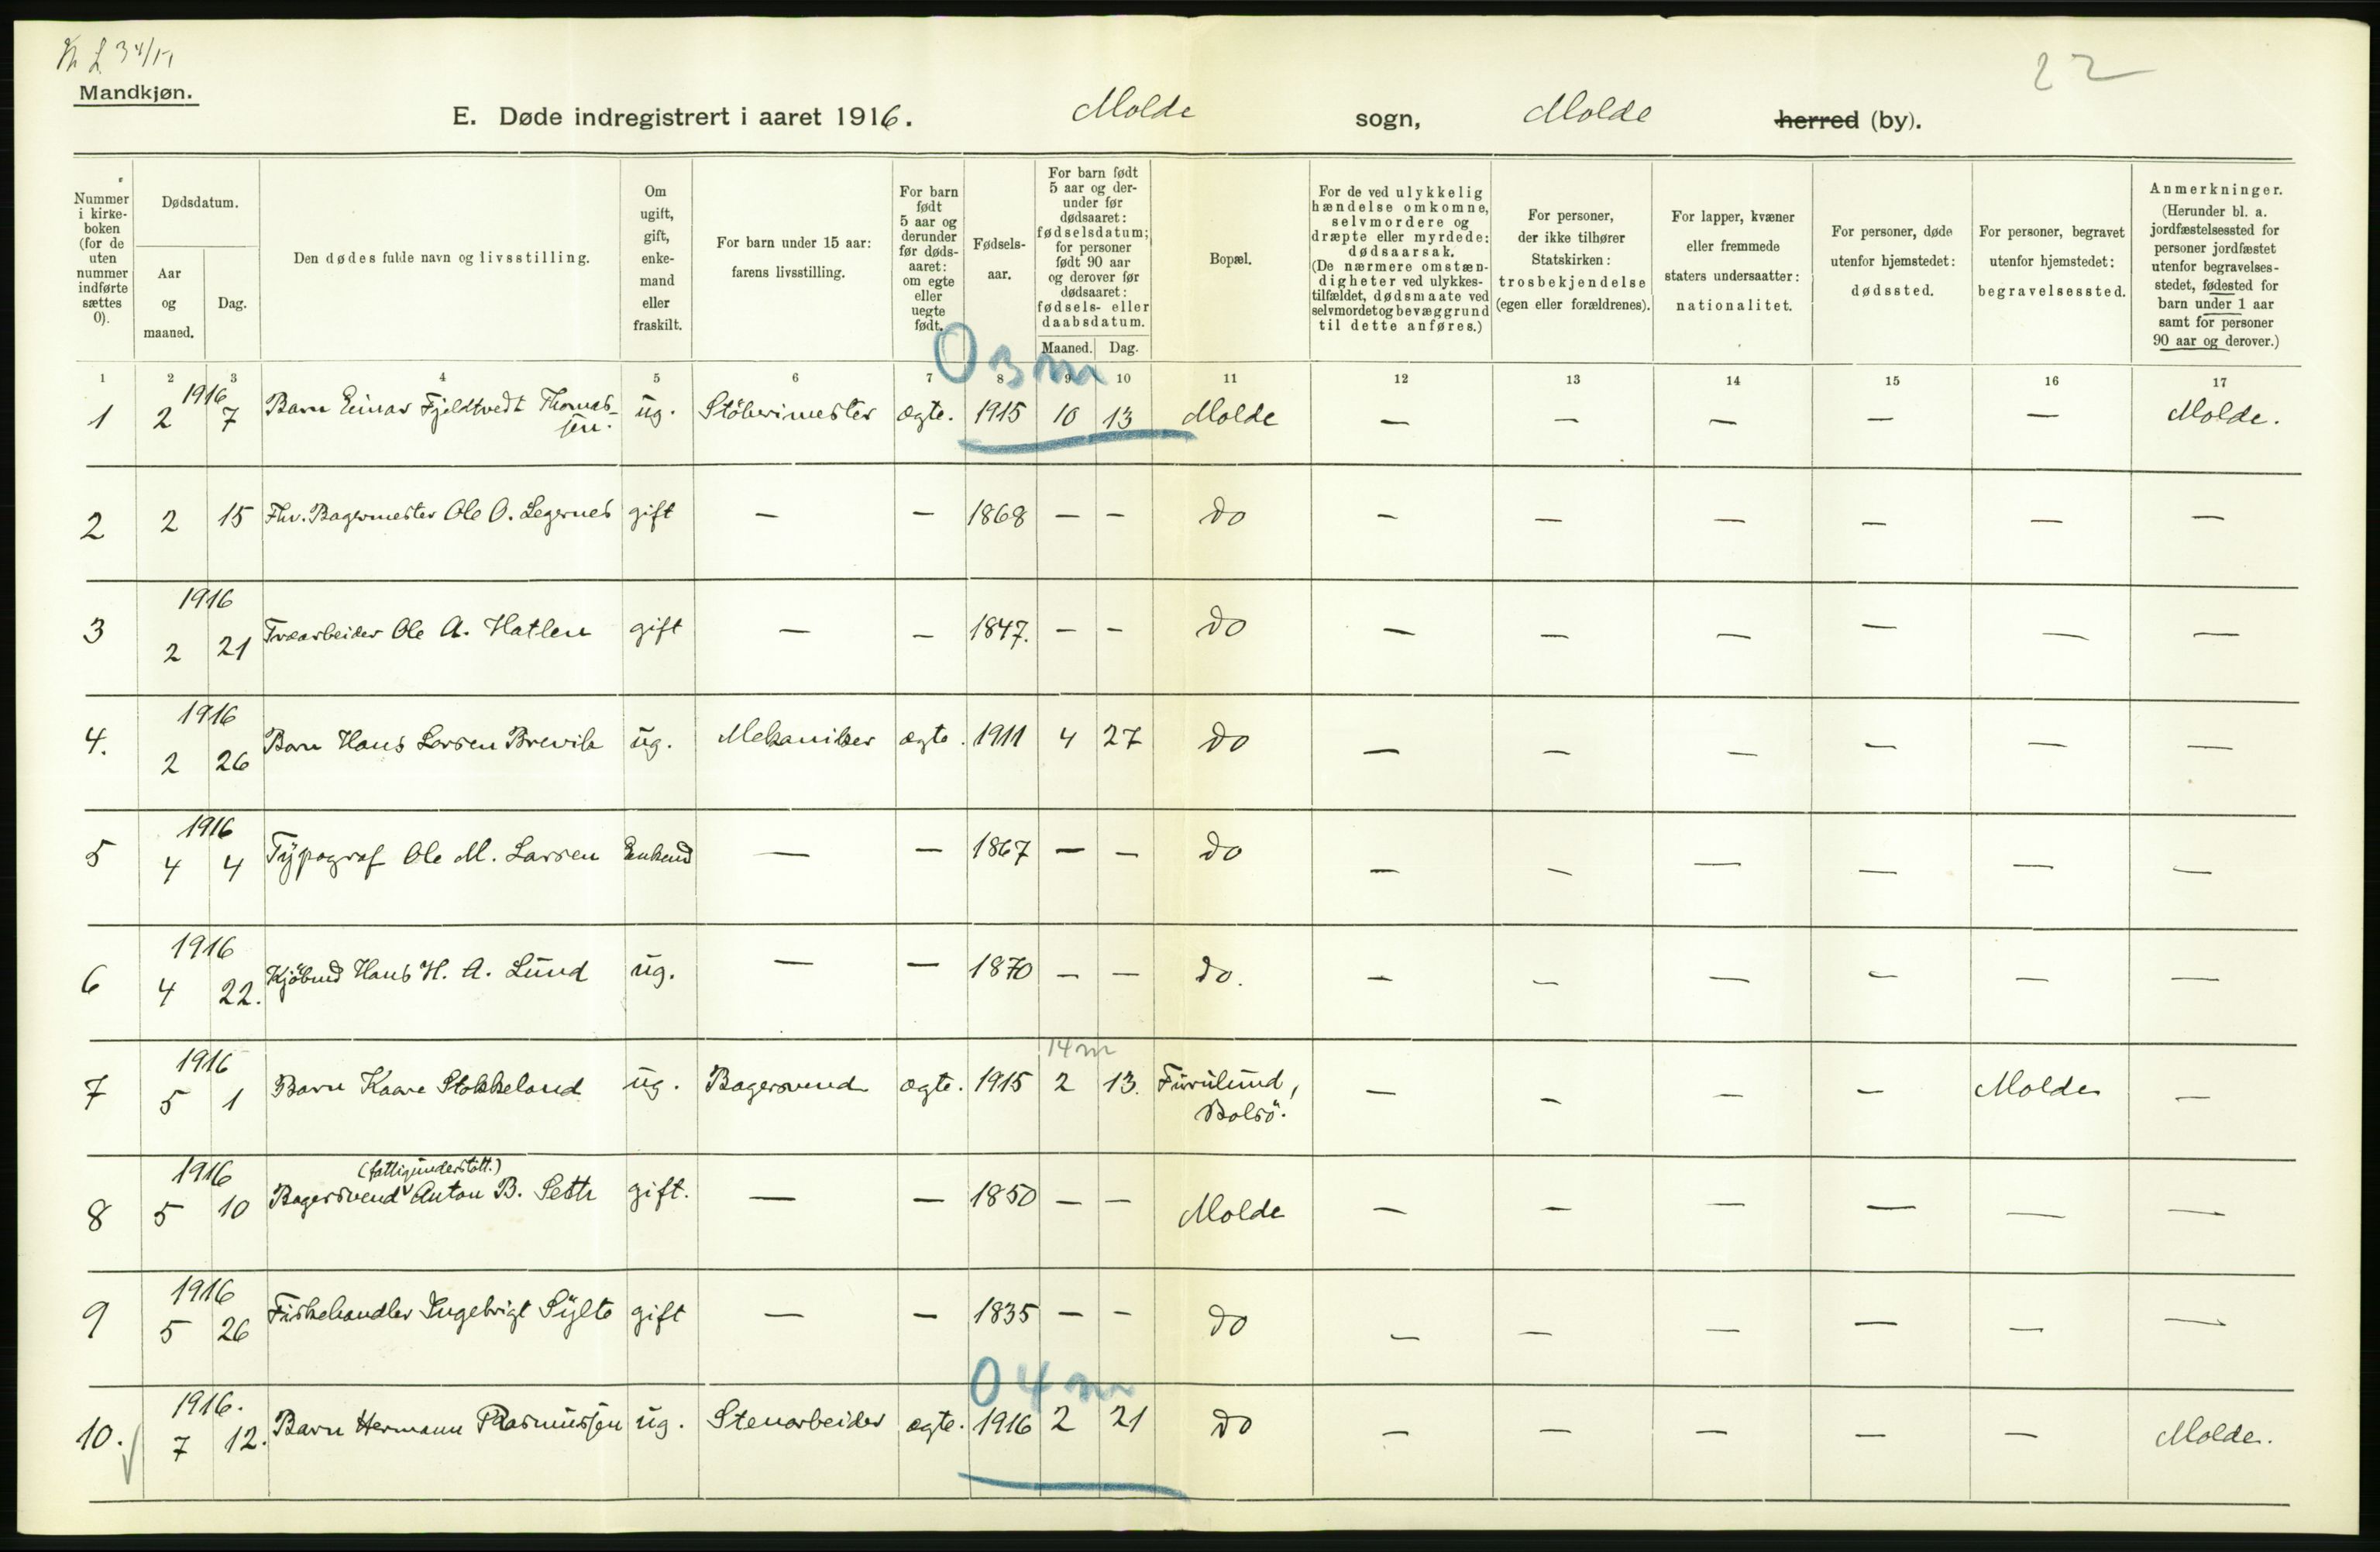 Mandkjøn.
22
E. Døde indregistrert i aaret 1916.
Molde sogn, Molde herred (by).
Nummer i kirke- boken (for de uten nummer indførte sættes 0).
Dødsdatum.
Aar og maaned.
Dag.
Den dødes fulde navn og livsstilling.
Om ugift, gift, enke- mand eller fraskilt.
For barn under 15 aar: farens livsstilling.
For barn født 5 aar og derunder før døds- aaret: om egte eller uegte født.
Fødsels- aar.
For barn født 5 aar og der- under før dødsaaret: fødselsdatum; for personer født 90 aar og derover før dødsaaret: fødsels- eller daabsdatum.
Maaned. Dag.
Bopæl.
For de ved ulykkelig hændelse omkomne, selvmordere og dræpte eller myrdede: dødsaarsak. (De nærmere omstæn- digheter ved ulykkes- tilfældet, dødsmaate ved selvmordet og bevæggrund til dette anføres.)
For personer, der ikke tilhører Statskirken: trosbekjendelse (egen eller forældrenes).
For lapper, kvæner eller fremmede staters undersaatter: nationalitet.
For personer, døde utenfor hjemstedet: dødssted.
For personer, begravet utenfor hjemstedet: begravelsessted.
Anmerkninger. (Herunder bl. a. jordfæstelsessted for personer jordfæstet utenfor begravelses- stedet, fødested for barn under 1 aar samt for personer 90 aar og derover.)
1 2 3 4 5 6 7 8 9 10 11 12 13 14 15 16 17
0 3 m
1916
1 2 7 Barn Einar Fjeldtvedt Thomas- sen. ug. Støberimester ægte. 1915 10 13 Molde — — — — — Molde.
2 2 15 Fhv. Bagermester Ole O. Legernes gift — — 1868 — — do — — — — — —
1916
3 2 21 Træarbeider Ole A. Hatlen gift — — 1847. — — do — — — — — —
1916
4. 2 26 Barn Hans Larsen Brevik ug. Mekaniker ægte. 1911 4 27 do — — — — — —
1916
5 4 4 Typograf Ole M. Larsen Enkemd — — 1867 — — do — — — — — —
1916
6 4 22. Kjøbmd Hans H. A. Lund ug. — — 1870 — — do. — — — — — —
1916
14 m
7 5 1 Barn Kaare Stokkeland ug. Bagersvend ægte. 1915 2 13. Furulund, Bolsö. — — — — Molde —
1916
(fattigunderstött.)
8 5 10 Bagersvend Anton B. Seth gift. — — 1850 — — Molde — — — — — —
1916
9 5 26 Fiskehandler Ingebrigt Sylte gift — — 1835 — — do — — — — — —
0 4 m
1916.
10. 7 12. Barn Hermann Rasmussen ug. Stenarbeider ægte. 1916 2 21 do — — — — — Molde.